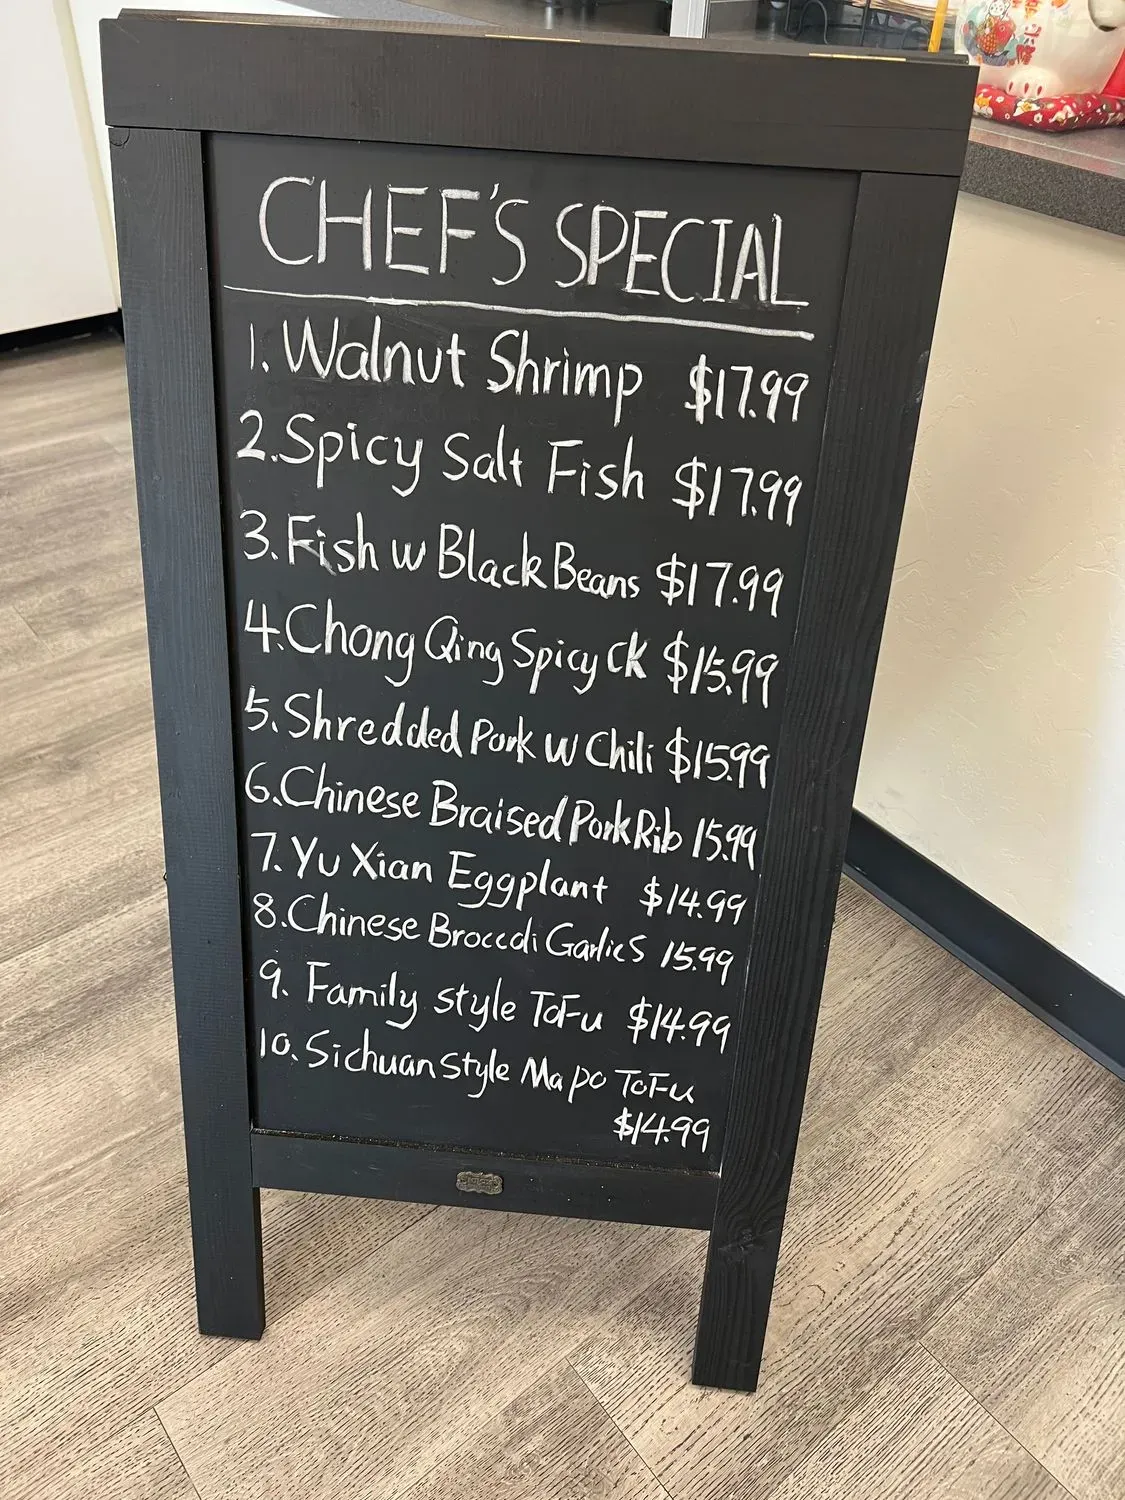 CHEF'S SPECIAL
1. Walnut Shrimp $17.99
2. Spicy Salt Fish $17.99
3. Fish w Black Beans $17.99
4. Chong Qing Spicy CK $15.99
5. Shredded Pork w Chili $15.99
6. Chinese Braised Pork Rib 15.99
7. Yu Xian Eggplant $14.99
8. Chinese Broccoli Garlics 15.99
9. Family style ToFu $14.99
10. Sichuan style Mapo ToFu
$14.99